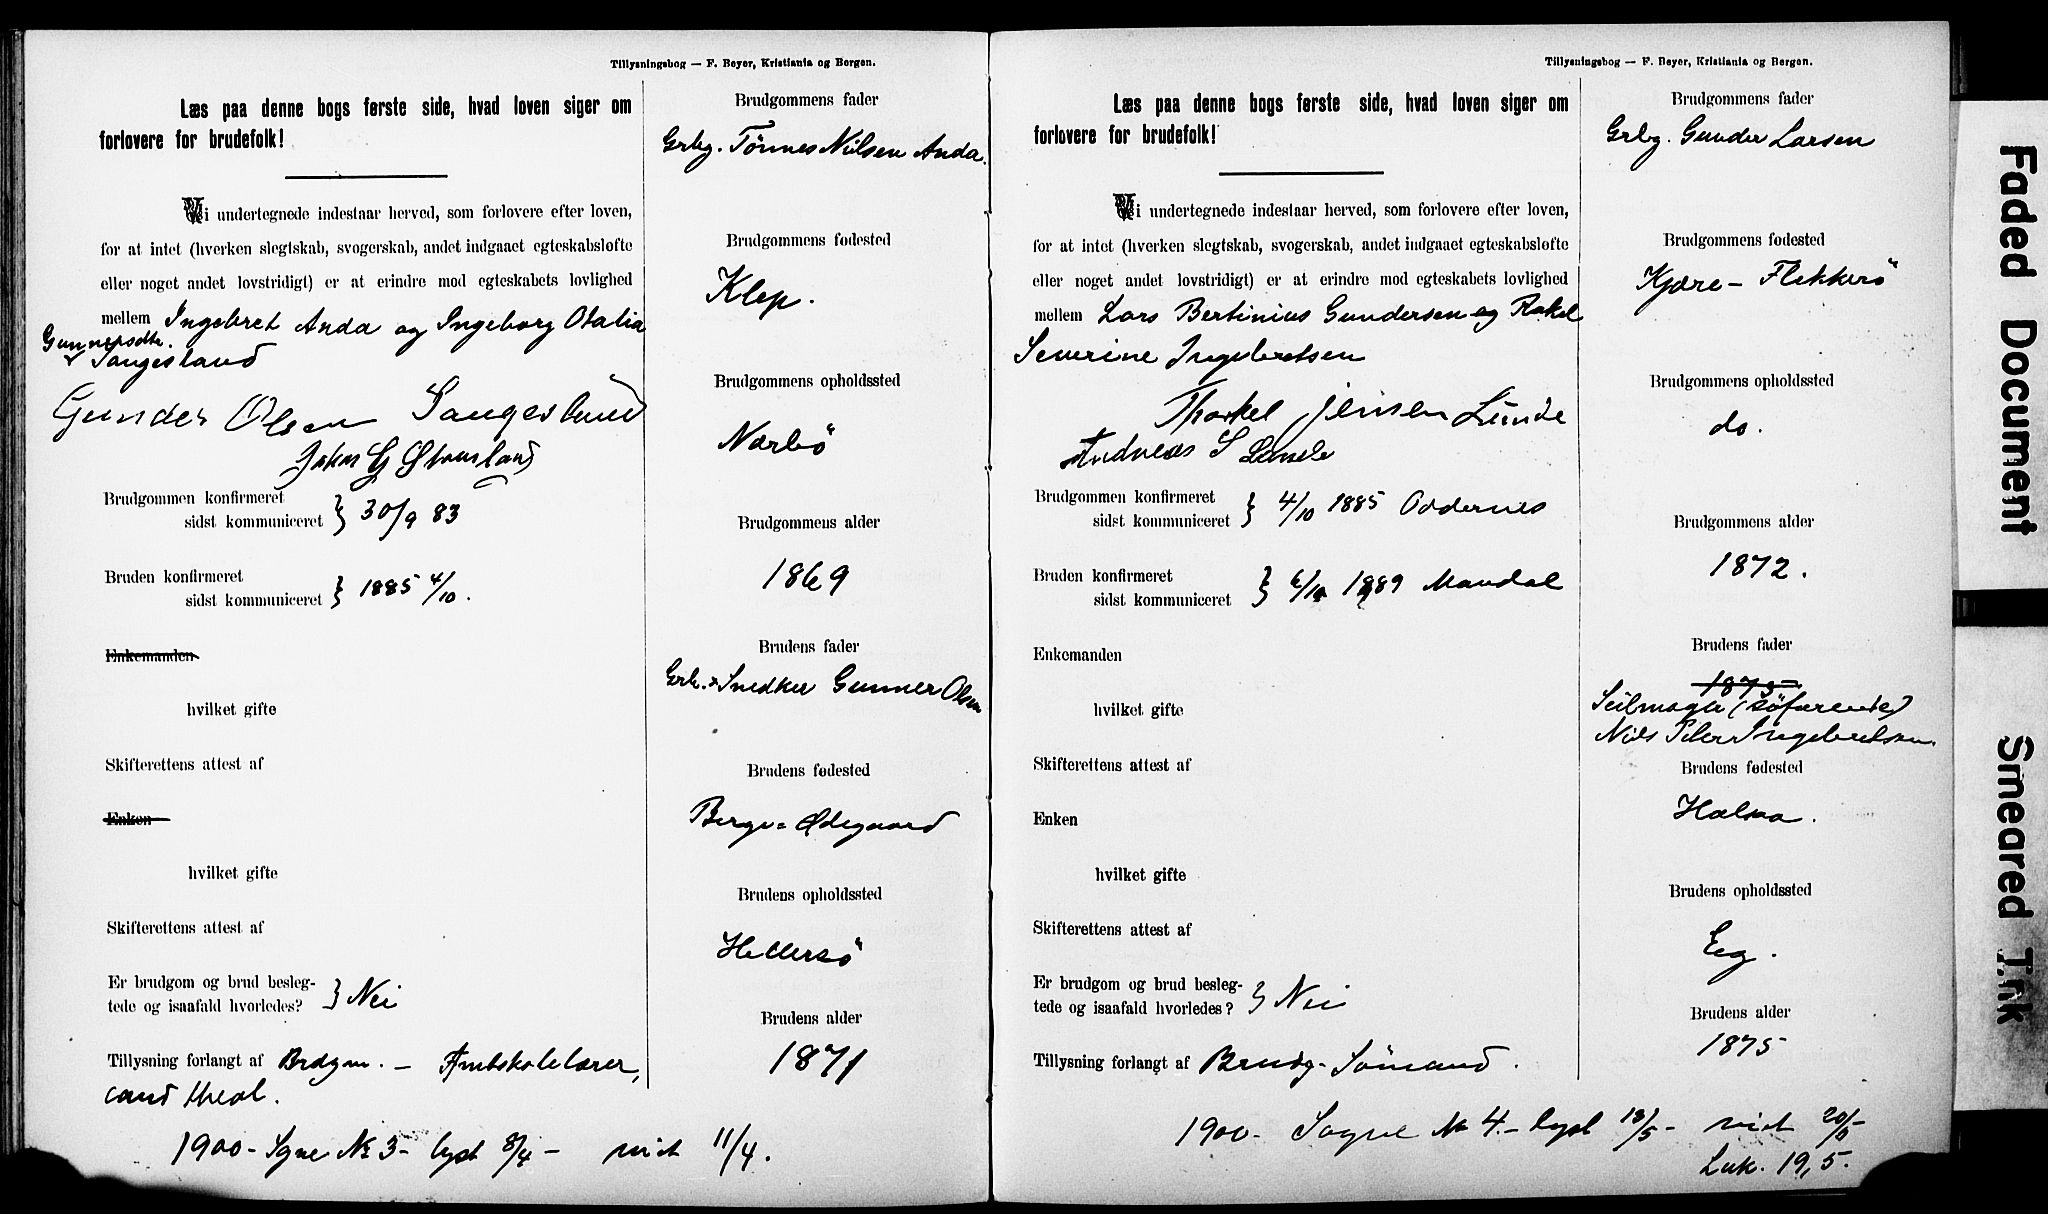 Tillysningsbog — F. Beyer, Kristiania og Bergen.
Læs paa denne bogs første side, hvad loven siger om
forlovere for brudefolk!
Vi undertegnede indestaar herved, som forlovere efter loven,
for at intet (hverken slegtskab, svogerskab, andet indgaaet egteskabsløfte
eller noget andet lovstridigt) er at erindre mod egteskabets lovlighed
mellem Ingebret Anda og Ingeborg Otalia
Gunnersdtr.
Sangesland
Gunder Olsen Sangesland
Brudgommen konfirmeret
sidst kommuniceret } 30/9 83
Bruden konfirmeret
sidst kommuniceret } 1885 4/10.
Enkemanden
hvilket gifte
Skifterettens attest af
Enken
hvilket gifte
Skifterettens attest af
Er brudgom og brud besleg-
tede og isaafald hvorledes? } Nei
Tillysning forlangt af Brdgm. — Amtskolelærer,
cand theol.
Brudgommens fader
Grbg. Tønnes Nilsen Anda.
Brudgommens fødested
Klep.
Brudgommens opholdssted
Nærbö
Brudgommens alder
1869
Brudens fader
Grb. & Snedker Gunner Olsen
Brudens fødested
Berge= Ødegaard
Brudens opholdssted
Hellersö
Brudens alder
1871
1900 - Sgne No 3 - lyst 8/4 - viet 11/4.
Tillysningsbog — F. Beyer, Kristiania og Bergen.
Læs paa denne bogs første side, hvad loven siger om
forlovere for brudefolk!
Vi undertegnede indestaar herved, som forlovere efter loven,
for at intet (hverken slegtskab, svogerskab, andet indgaaet egteskabsløfte
eller noget andet lovstridigt) er at erindre mod egteskabets lovlighed
mellem Lars Bertinius Gundersen og Rakel
Severine Ingebretsen
Thorkel Jensen Lunde
Andreas S Lunde
Brudgommen konfirmeret
sidst kommuniceret } 4/10 1885 Oddernes
Bruden konfirmeret
sidst kommuniceret } 6/10 1889 Mandal
Enkemanden
hvilket gifte
Skifterettens attest af
Enken
hvilket gifte
Skifterettens attest af
Er brudgom og brud besleg-
tede og isaafald hvorledes? } Nei
Tillysning forlangt af Brudg - Sömand.
Brudgommens fader
Grbg. Gunder Larsen
Brudgommens fødested
Kjære - Flekkerö
Brudgommens opholdssted
do.
Brudgommens alder
1872.
Brudens fader
1875
Seilmager (söfarende)
Nils Peter Ingebretsen
Brudens fødested
Halsaa.
Brudens opholdssted
Eeg.
Brudens alder
1875
1900 - Sogne No 4. - lyst 13/5 - viet 20/5
Luk. 19,5.
Faded Document
Smeared Ink